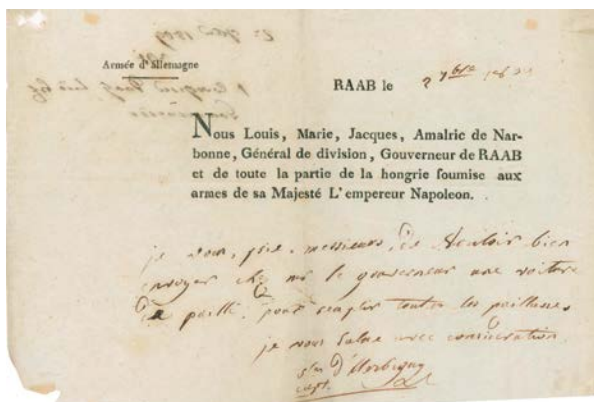 Armée d'Allemagne
RAAB le 2 7bre 1809
Nous Louis, Marie, Jacques, Amalric de Nar-
bonne, Général de division, Gouverneur de RAAB
et de toute la partie de la hongrie soumise aux
armes de sa Majesté L'empereur Napoleon.
je vous prie, messieurs, de vouloir bien
envoyer chez mr le gouverneur une voiture
de paille, pour remplir toutes les paillasses
je vous salue avec considération
capt.